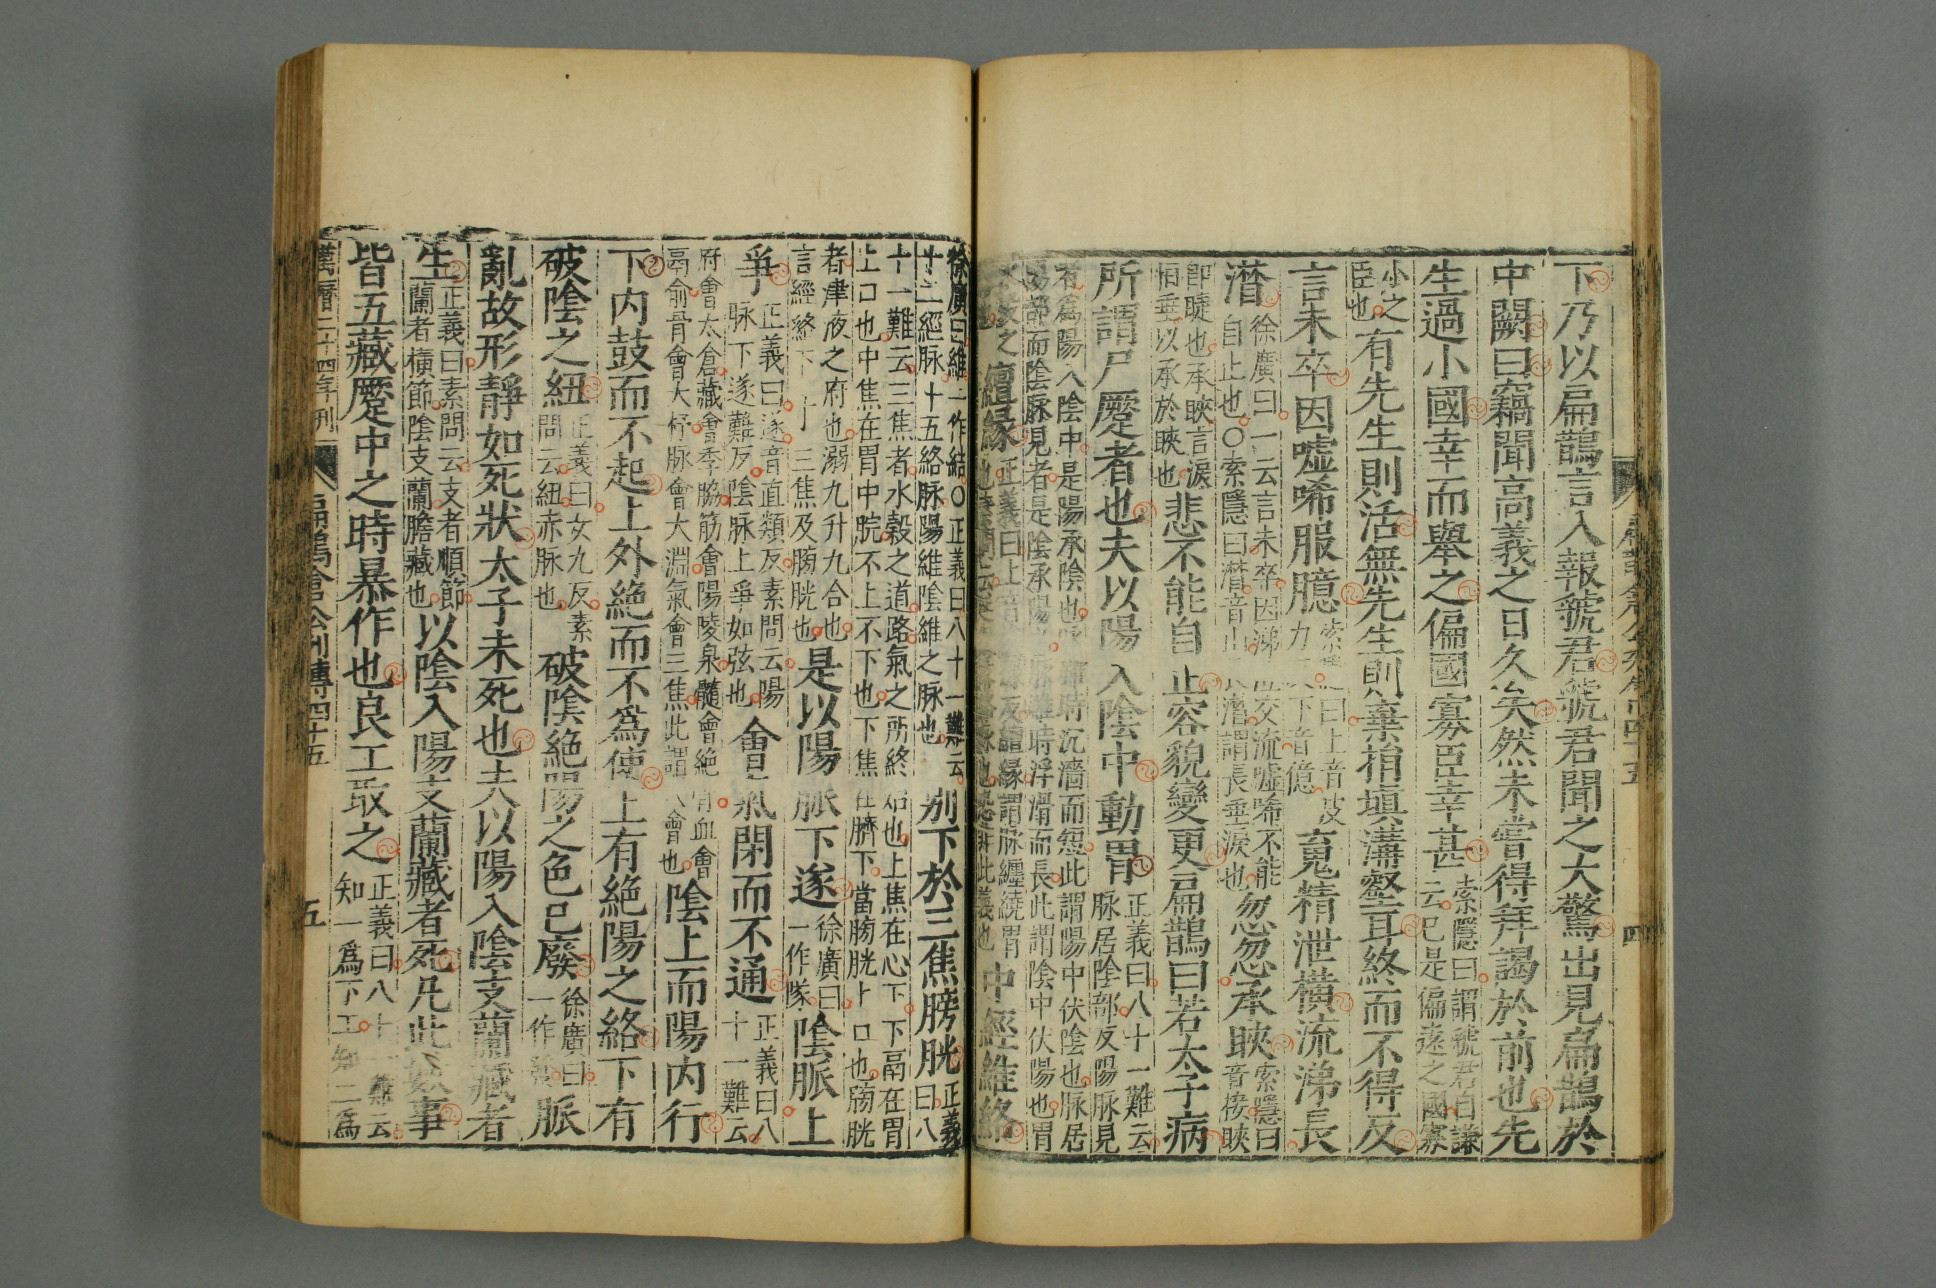 下乃以扁鵲言入報虢君虢君聞之大驚出見扁鵲於
中闕曰竊聞高義之日久矣然未嘗得拜謁於前也先
生過小國幸而舉之偏國寡臣幸甚索隱曰謂虢君自謙云己是偏遠之國寡
小之臣也有先生則活無先生則棄捐填溝壑長終而不得反
言未卒因噓唏服臆曰上音皮力下音憶䰟精泄橫流涕長
潸徐廣曰一云言未卒因涕交流噓唏不能自止也○索隱曰潸音山潸謂長垂淚也忽忽承䀹索隱曰音接䀹
即睫也承䀹言淚恒垂以承於䀹也悲不能自止容貌變更扁鵲曰若太子病
所謂尸蹷者也夫以陽入陰中動胃正義曰八十一難云脉居陰部反陽脉見
者爲陽入陰中是陽承陰也時沉濇而短此謂陽中伏陰也脉居
陽部而陰脉見者是陰承陽也雖時浮滑而長此謂陰中伏陽也胃
繵緣正義曰上音繵緣謂脉纏繞胃也此義也中經維絡
徐廣曰維一作結○正義曰八十一難云十二經脉十五絡脉陽維陰維之脉也別下於三焦膀胱正義曰八
十一難云三焦者水穀之道路氣之所終始也上焦在心下下鬲在胃
上口也中焦在胃中脘不上不下也下焦在臍下當膀胱上口也膀胱
者津液之府也溺九升九合也言經絡下于三焦及膀胱也是以陽脈下遂徐廣曰一作隊陰脈上
爭正義曰遂音直類反素問云陽脉下遂難反陰脉上爭如弦也會氣閉而不通正義曰八十一難云
府會太倉藏會季脇筋會陽陵泉髓會絕骨血會鬲俞骨會大杼脉會大淵氣會三焦此謂八會也陰上而陽內行
下內鼓而不起上外絕而不爲使上有絕陽之絡下有
破陰之紐正義曰女九反素問云紐赤脉也破陰絕陽之色已廢徐廣曰一作發脈
亂故形靜如死狀太子未死也夫以陽入陰支蘭藏者
生正義曰素問云支者順節蘭者橫節陰支蘭膽藏也以陰入陽支蘭藏者死凡此數事
皆五藏蹷中之時暴作也良工取之正義曰八十一難云知一爲下工知二爲
萬曆二十四年刊 扁鵲倉公列傳四十五 五